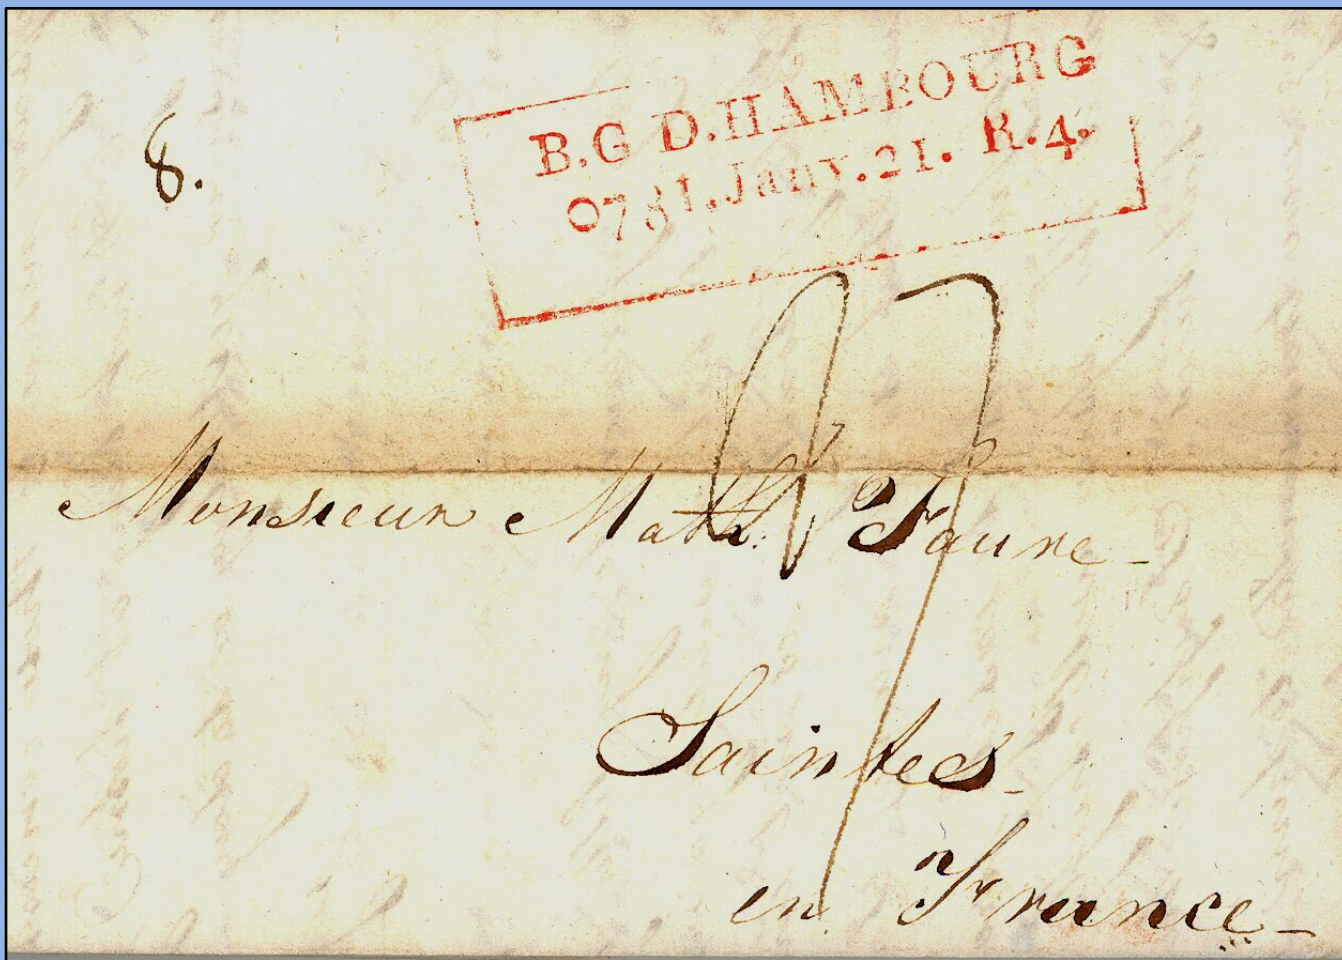 B.G D.HAMBOURG
0781.Janv.21. R.4.
8.
Monsieur Math: Faure
Saintes
en France